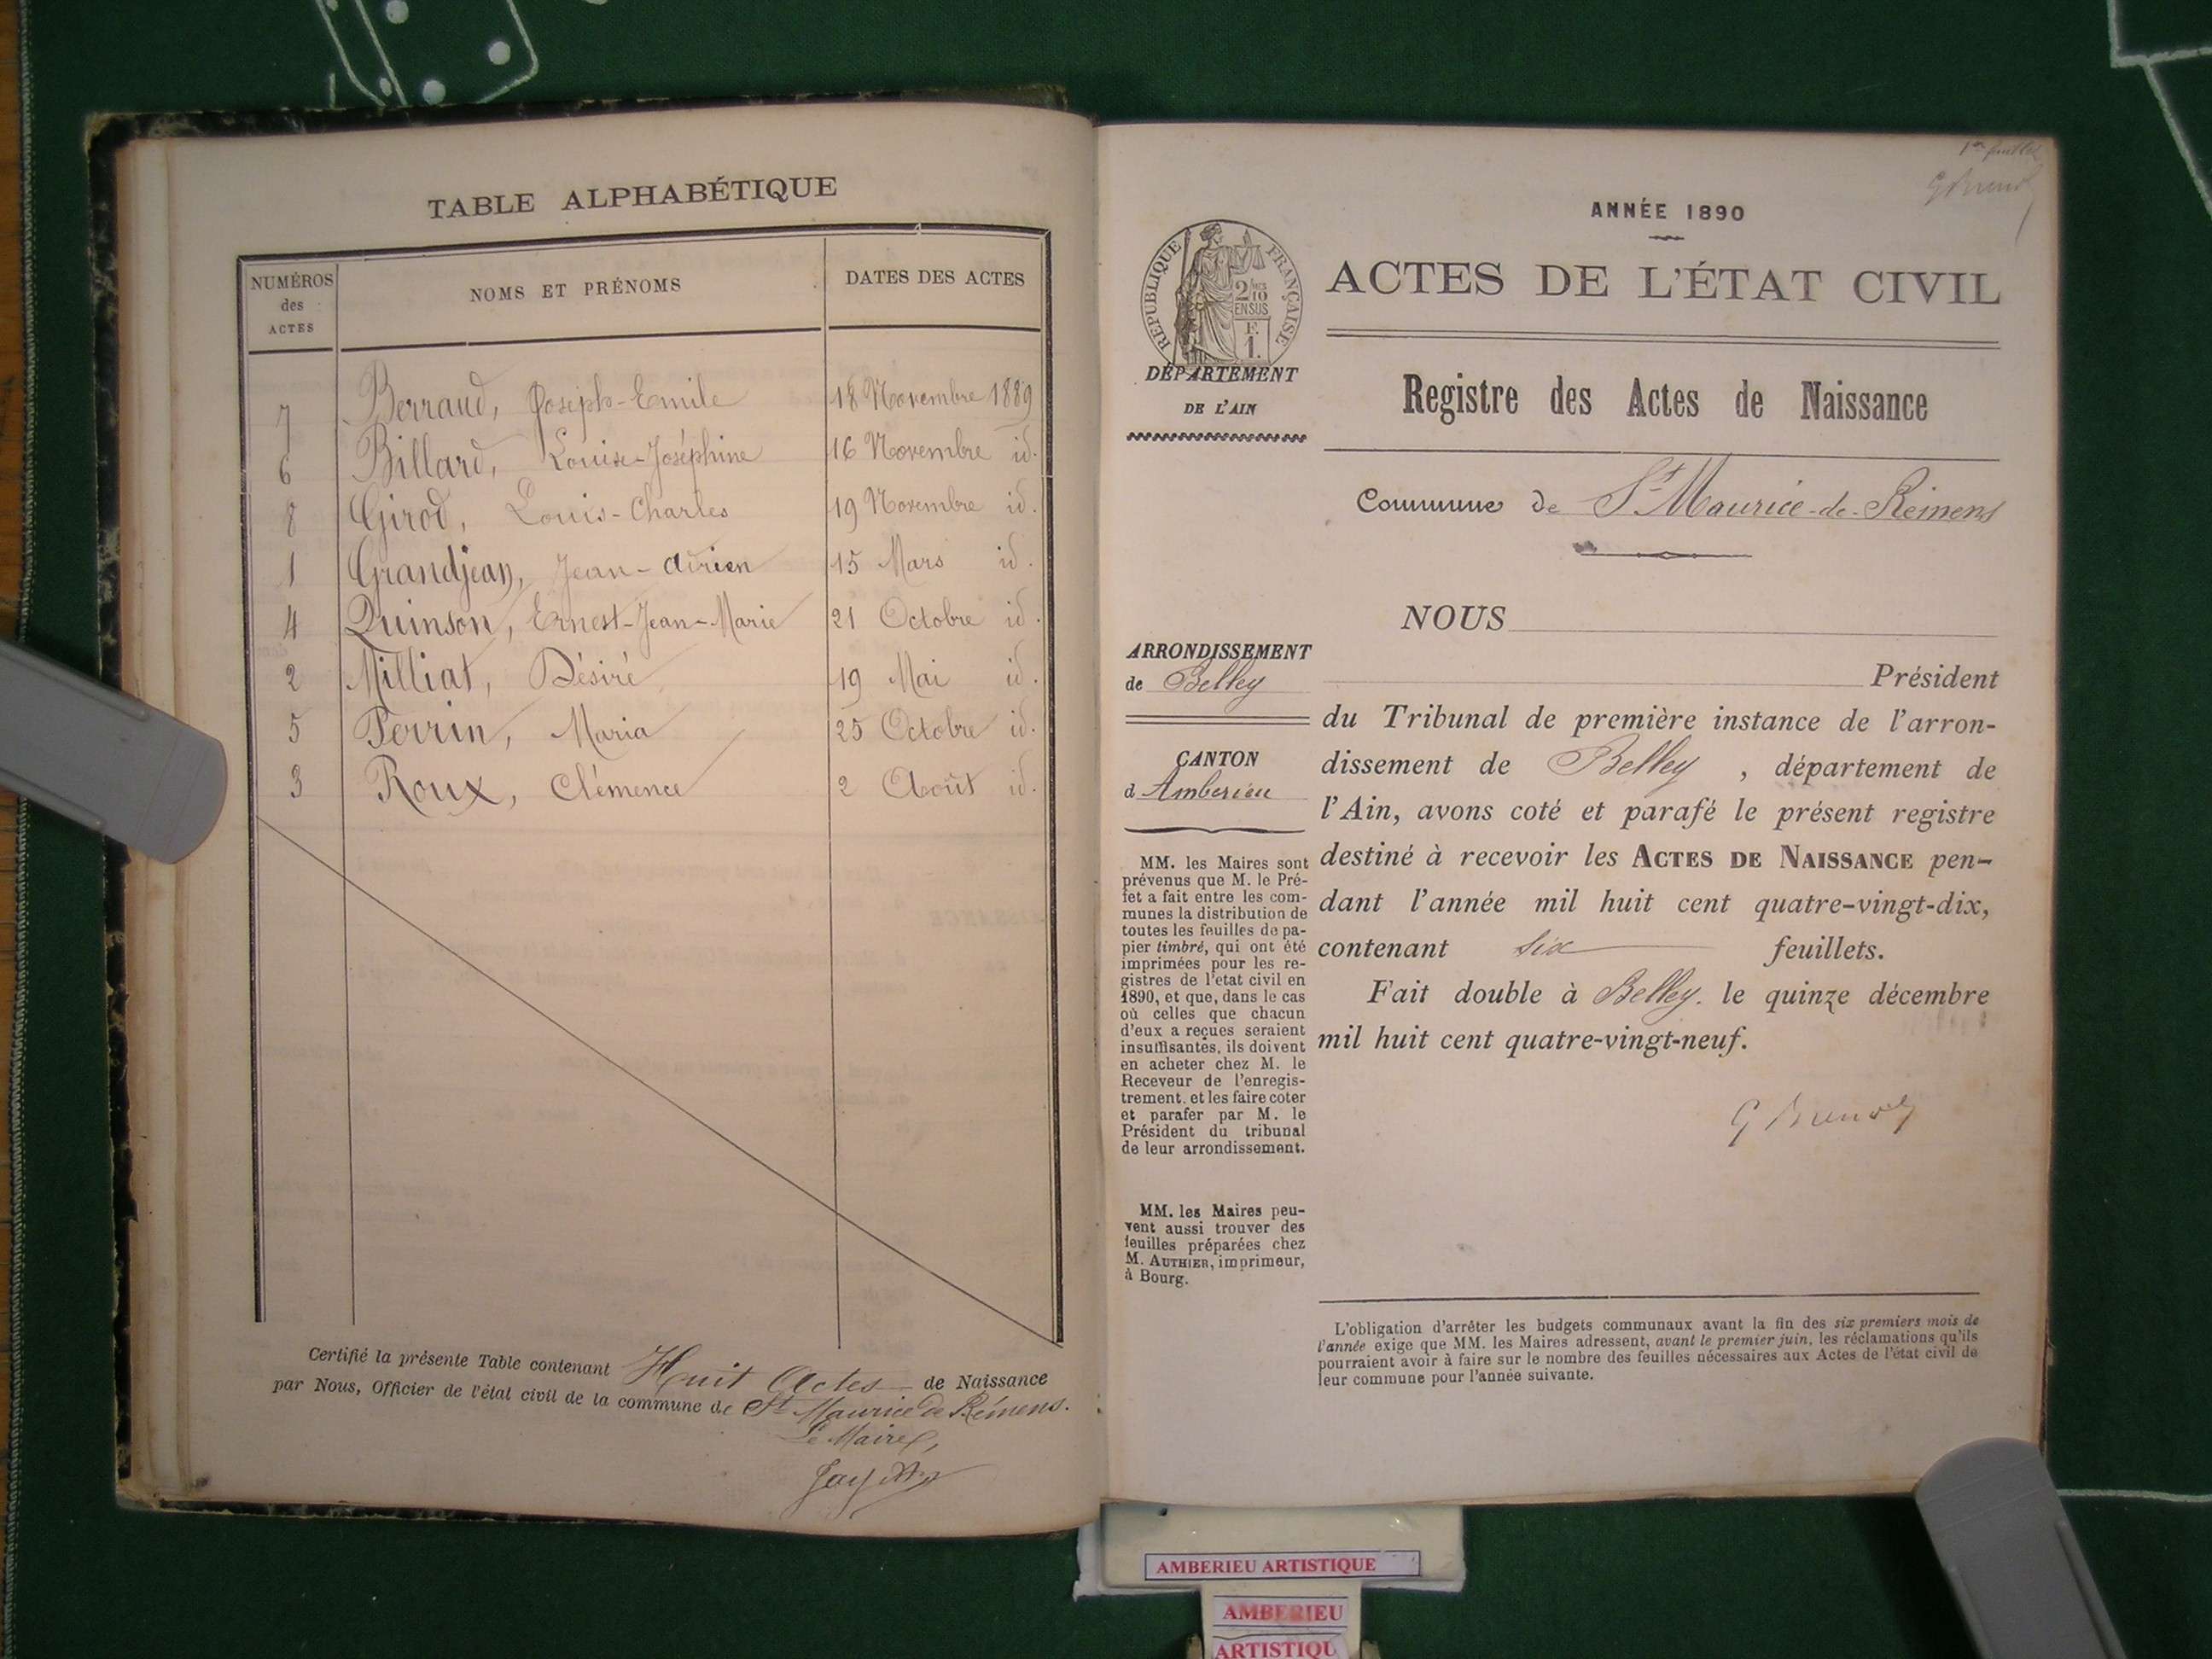 TABLE ALPHABÉTIQUE
NUMÉROS des ACTES NOMS ET PRÉNOMS DATES DES ACTES
7 Berraud, Joseph-Emile 18 Novembre 1889
6 Billard, Louise-Joséphine 16 Novembre id.
8 Girod, Louis-Charles 19 Novembre id.
1 Grandjean, Jean-Adrien 15 Mars id.
4 Quinson, Ernest-Jean-Marie 21 Octobre id.
2 Milliat, Désiré 19 Mai id.
5 Perrin, Maria 25 Octobre id.
3 Roux, Clémence 2 Août id.
Certifié la présente Table contenant Huit Actes de Naissance
par Nous, Officier de l'état civil de la commune de St Maurice de Rémens.
Le Maire,
1er feuillet
ANNÉE 1890
RÉPUBLIQUE FRANÇAISE
2/10
EN SUS
F.
1.
ACTES DE L'ÉTAT CIVIL
DÉPARTEMENT
DE L'AIN
Registre des Actes de Naissance
Commune de St Maurice-de-Rémens
ARRONDISSEMENT
de Belley
CANTON
d Amberieu
MM. les Maires sont
prévenus que M. le Pré-
fet a fait entre les com-
munes la distribution de
toutes les feuilles de pa-
pier timbré, qui ont été
imprimées pour les re-
gistres de l'etat civil en
1890, et que, dans le cas
où celles que chacun
d'eux a reçues seraient
insuffisantes, ils doivent
en acheter chez M. le
Receveur de l'enregis-
trement. et les faire coter
et parafer par M. le
Président du tribunal
de leur arrondissement.
MM. les Maires peu-
vent aussi trouver des
feuilles préparées chez
M. AUTHIER, imprimeur,
à Bourg.
NOUS
Président
du Tribunal de première instance de l'arron-
dissement de Belley , département de
l'Ain, avons coté et parafé le présent registre
destiné à recevoir les ACTES DE NAISSANCE pen-
dant l'année mil huit cent quatre-vingt-dix,
contenant six feuillets.
Fait double à Belley. le quinze décembre
mil huit cent quatre-vingt-neuf.
L'obligation d'arrêter les budgets communaux avant la fin des six premiers mois de
l'année exige que MM. les Maires adressent, avant le premier juin, les réclamations qu'ils
pourraient avoir à faire sur le nombre des feuilles nécessaires aux Actes de l'état civil de
leur commune pour l'année suivante.
AMBERIEU ARTISTIQUE
AMBERIEU
ARTISTIQU